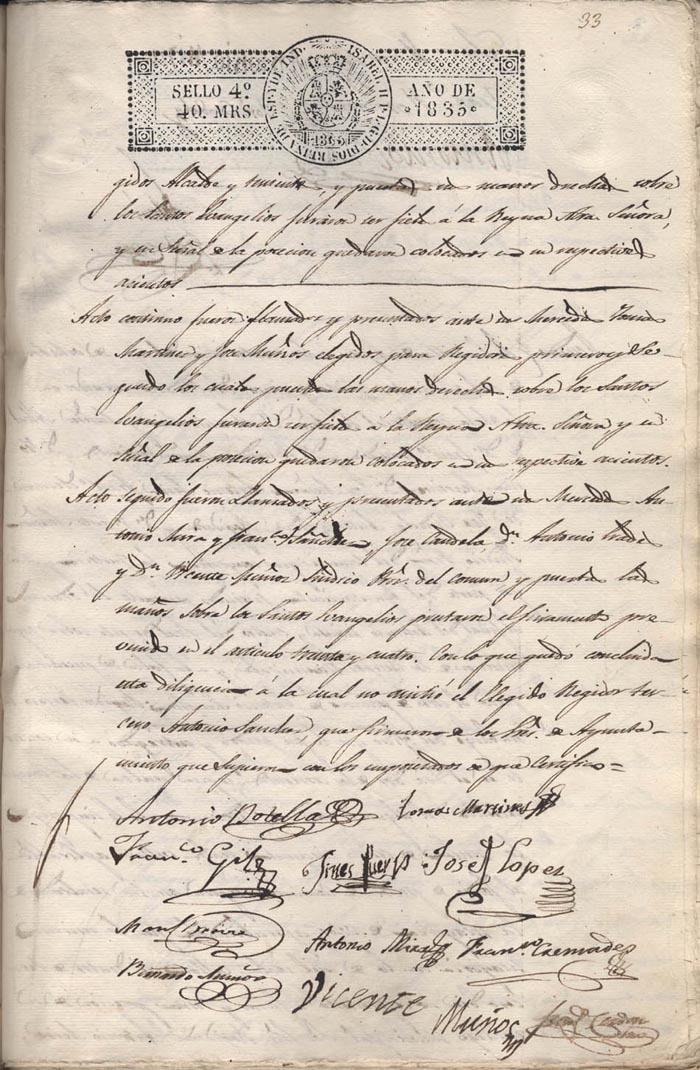 33
SELLO 4º AÑO DE
40. MRS 1835
ISABEL II P. L. G. D. DIOS REINA DE ESP. Y DE IND.
1835
gidos Alcalde y teniente, y puestas sus manos drechas sobre
los Santos Evangelios juraron ser fieles á la Reyna Ntra. Señora,
y en Señal de la posecion quedaron colocados en su respectivos
acientos
Acto continuo fueron llamados y presentados ante su Merced Tomas
Martines y Jose Muños elegidos para Regidor primero y Se-
gundo los cuales puestas las manos drechas sobre los Santos
Evangelios juraron ser fieles á la Reyna Ntra. Señora y en
Señal de la posecion quedaron colocados en su respective acientos.
Acto seguido fueron llamados y presentados ante su Merced An-
tonio Mira y Franco. Sanches, Jose Candela, Dn. Antonio
y Dn. Vicente Muñoz Sindico del comun y puestas las
manos Sobre los Santos Evangelios prestaron el juramento pre-
venido en el articulo treinta y cuatro. Con lo que quedó concluida
esta diligencia á la cual no asistió el Elegido Regidor ter-
cero Antonio Sanches, que firmaron de los Sres. de Ayunta-
miento que Supieron con los emposecados de que Certifico=
Antonio Botella Tomas Martines
Franco. Gil Jose Lopes
Antonio Mira Franco. Cremades
Bernardo Muños
Vicente
Muños